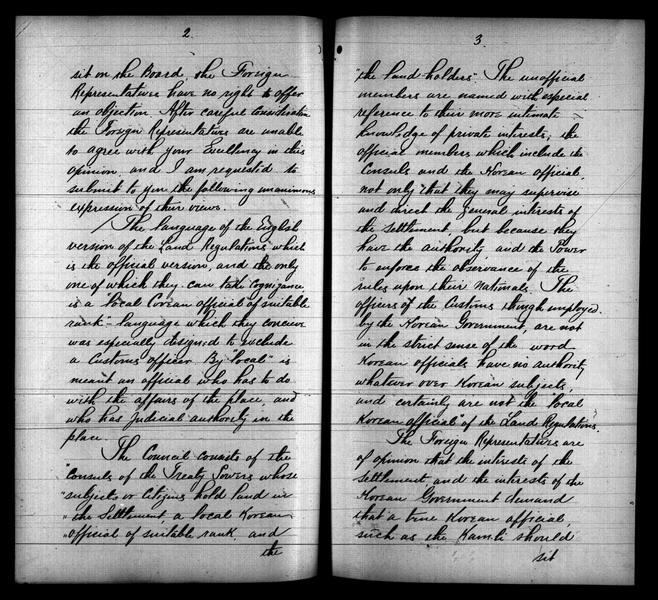 2.
sit on the Board, the Foreign
Representatives have no right to offer
an objection. After careful consideration
the Foreign Representatives are unable
to agree with your Excellency in this
opinion, and I am requested to
submit to you the following unanimous
expression of their views.
The language of the English
version of the Land Regulations which
is the official version, and the only
one of which they can take Cognizance
is a "local Corean official of suitable
rank" - language which they conceive
was especially designed to exclude
a Customs officer. By "local" is
meant an official who has to do
with the affairs of the place, and
who has judicial authority in the
place.
The Council consists of the
"Consuls of the Treaty Powers whose
"subjects or Citizens hold land in
"the Settlement, a local Korean
"official of suitable rank, and
the
3.
"the land-holders" The unofficial
members are named with especial
reference to their more intimate
knowledge of private interests; the
official members which include the
Consuls and the Korean official,
not only that they may supervise
and direct the general interests of
the settlement, but because they
have the authority and the Power
to enforce the observance of the
rules upon their Nationals. The
officers of the Customs though employed
by the Korean Government, are not
in the strict sense of the word
Korean officials have no authority
whatever over Korean subjects,
and certainly are not the "local
Korean official" of the Land Regulations.
The Foreign Representatives are
of opinion that the interests of the
Settlement, and the interests of the
Korean Government demand
that a true Korean official,
such as the Kamli should
sit